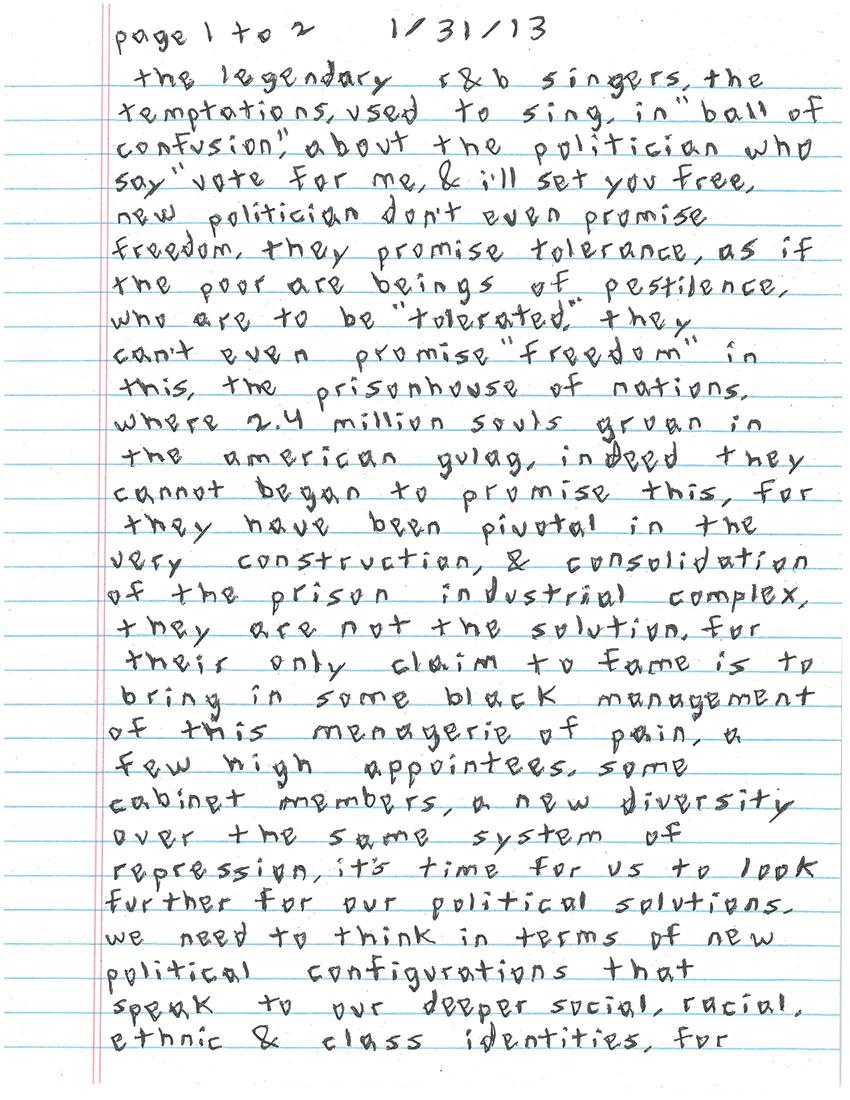 page 1 to 2 1/31/13
the legendary r&b singers, the
temptations, used to sing, in "ball of
confusion," about the politician who
say "vote for me, & i'll set you free,
new politician don't even promise
freedom, they promise tolerance, as if
the poor are beings of pestilence,
who are to be "tolerated," they
can't even promise "freedom" in
this, the prisonhouse of nations,
where 2.4 million souls groan in
the american gulag, indeed they
cannot began to promise this, for
they have been pivotal in the
very construction, & consolidation
of the prison industrial complex,
they are not the solution, for
their only claim to fame is to
bring in some black management
of this menagerie of pain, a
few high appointees, some
cabinet members, a new diversity
over the same system of
repression, it's time for us to look
further for our political solutions.
we need to think in terms of new
political configurations that
speak to our deeper social, racial,
ethnic & class identities, for